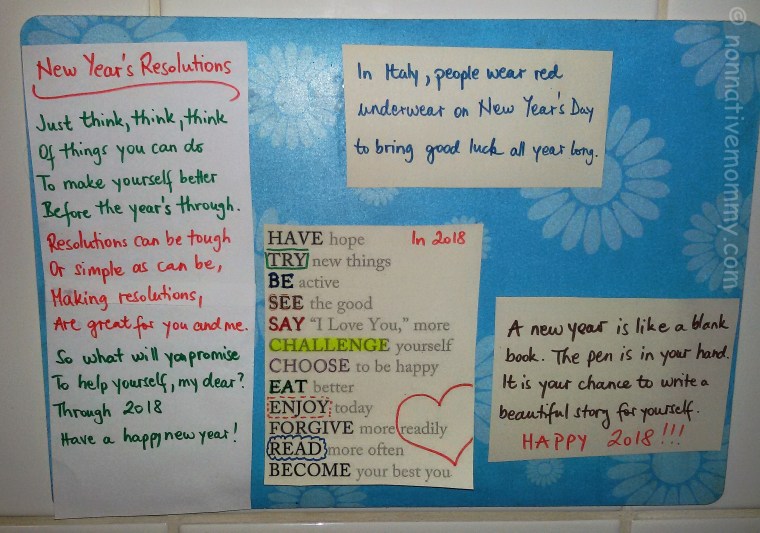 New Year's Resolutions
Just think, think, think
Of things you can do
To make yourself better
Before the year's through.
Resolutions can be tough
Or simple as can be,
Making resolutions,
Are great for you and me.
So what will you promise
To help yourself, my dear?
Through 2018
Have a happy new year!
In Italy, people wear red
underwear on New Year's Day
to bring good luck all year long.
In 2018
HAVE hope
TRY new things
BE active
SEE the good
SAY “I Love You,” more
CHALLENGE yourself
CHOOSE to be happy
EAT better
ENJOY today
FORGIVE more readily
READ more often
BECOME your best you
A new year is like a blank
book. The pen is in your hand.
It is your chance to write a
beautiful story for yourself.
HAPPY 2018!!!
© nonnativemommy.com